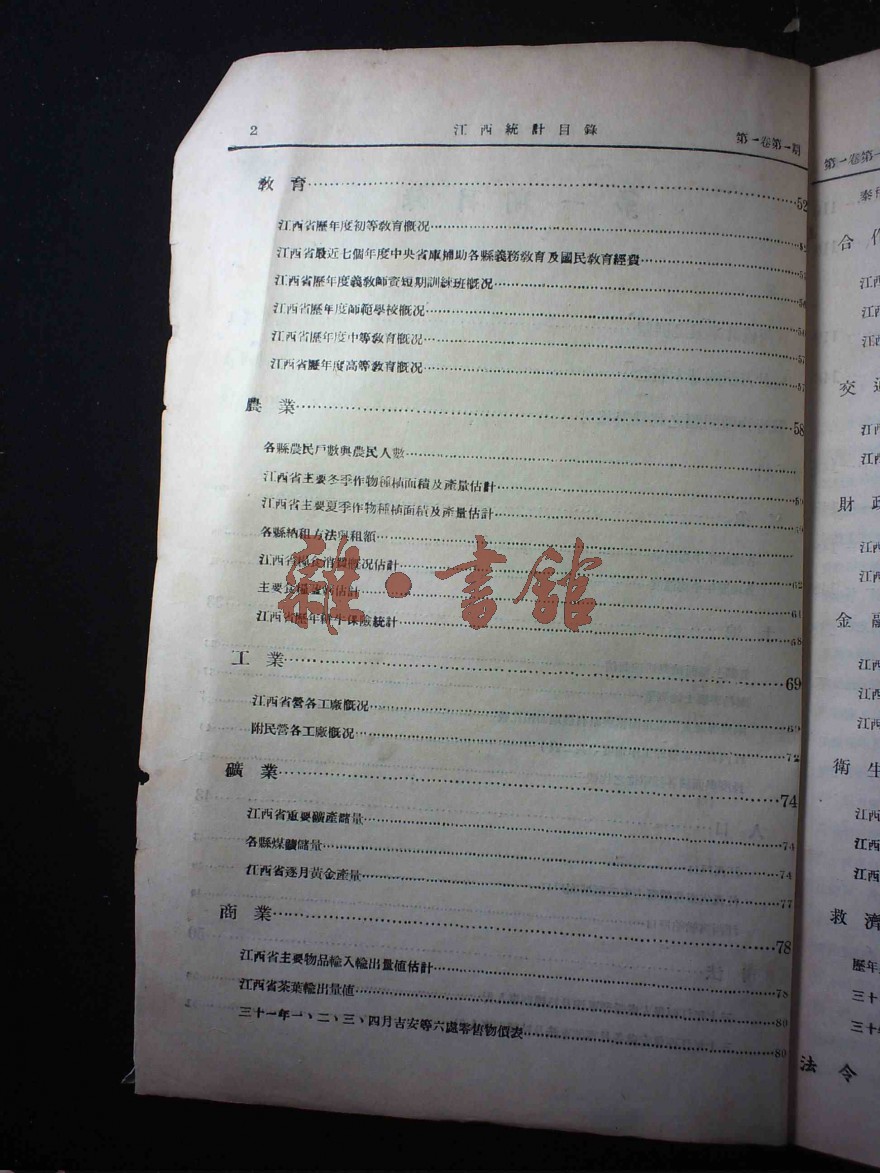 2 江西統計目錄 第一卷第一期
教育 52
江西省歷年度初等教育概况 52
江西省最近七個年度中央省庫補助各縣義務教育及國民教育經費
江西省歷年度義教師資短期訓練班概况
江西省歷年度師範學校概况
江西省歷年度中等教育概况 57
江西省歷年度高等教育概况 57
農業 58
各縣農民戶數與農民人數
江西省主要冬季作物種植面積及產量估計
江西省主要夏季作物種植面積及產量估計
各縣納租方法與租額
江西省糧食消費概况估計 62
主要食糧 估計 64
江西省歷年耕牛保險統計 68
工業 69
江西省營各工廠概况 69
附民營各工廠概况 72
礦業 74
江西省重要礦產儲量 74
各縣煤礦儲量 74
江西省逐月黃金產量 77
商業 78
江西省主要物品輸入輸出量值估計 78
江西省茶葉輸出量值 80
三十一年一、二、三、四月吉安等六處零售物價表 80
雜·書館
第一卷第一
合作
江西
江西
江西
交通
江西
江西
財政
江西
江西
金融
江西
江西
江西
衛生
江西
江西
江西
救濟
歷年
三十
三十
法令